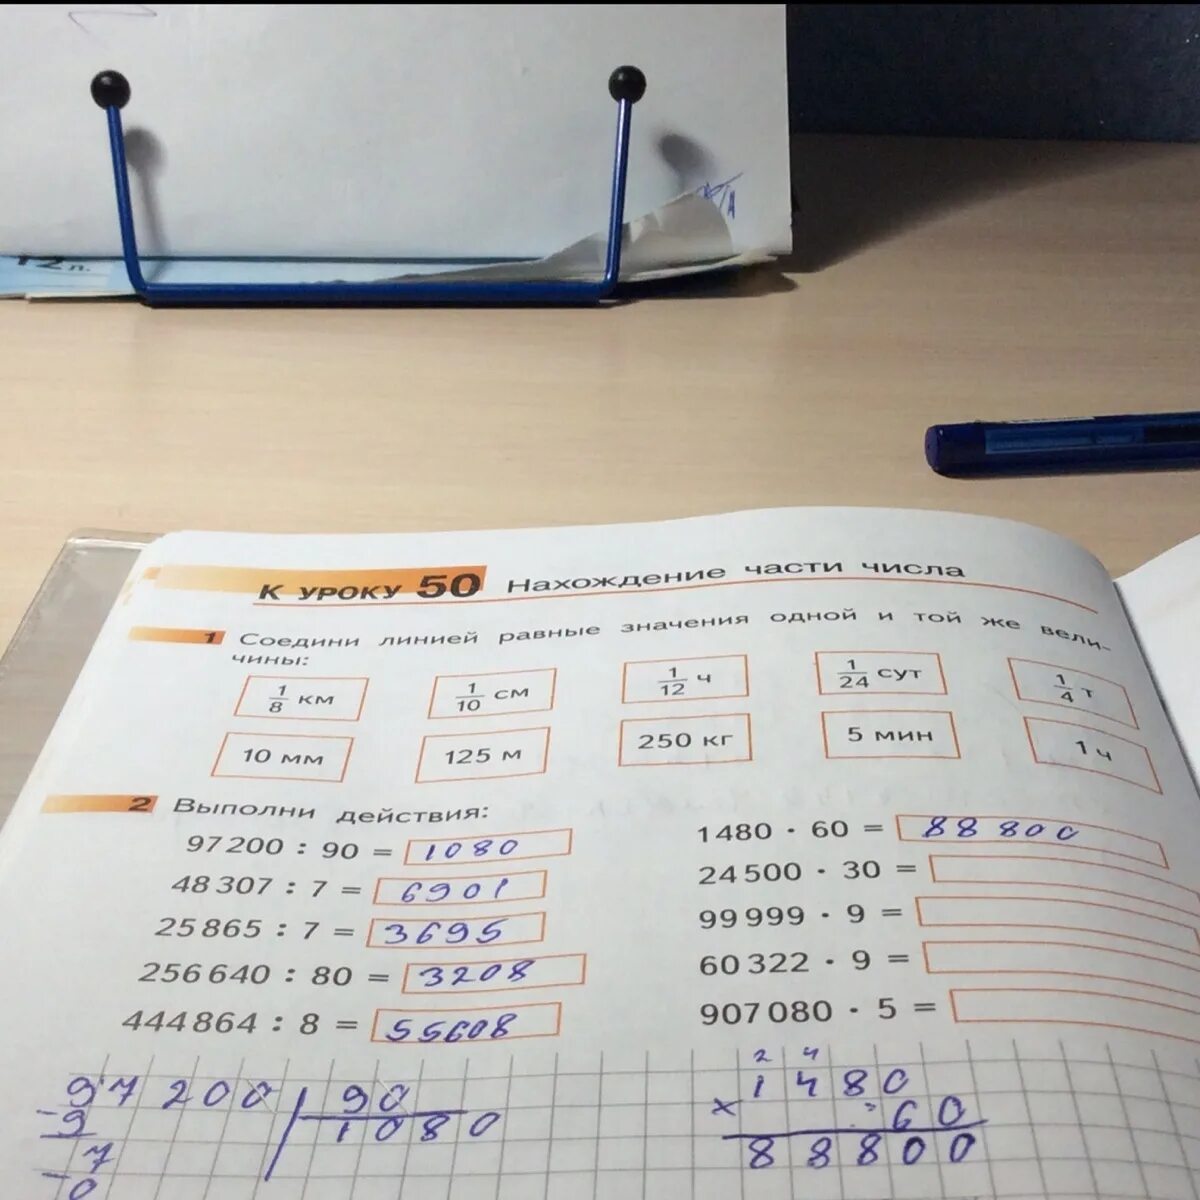 12 л.
К УРОКУ 50 НАХОЖДЕНИЕ ЧАСТИ ЧИСЛА
1 Соедини линией равные значения одной и той же вели-
чины:
1/8 км 1/10 см 1/12 ч 1/24 сут 1/4 т
10 мм 125 м 250 кг 5 мин 1 ч
2 Выполни действия:
97 200 : 90 = 1080
48 307 : 7 = 6901
25 865 : 7 = 3695
256 640 : 80 = 3208
444 864 : 8 = 55608
1480 · 60 = 88 800
24 500 · 30 =
99 999 · 9 =
60 322 · 9 =
907 080 · 5 =
97 200 90
-9 1080
7
-0
2 4
1480
× 60
88800